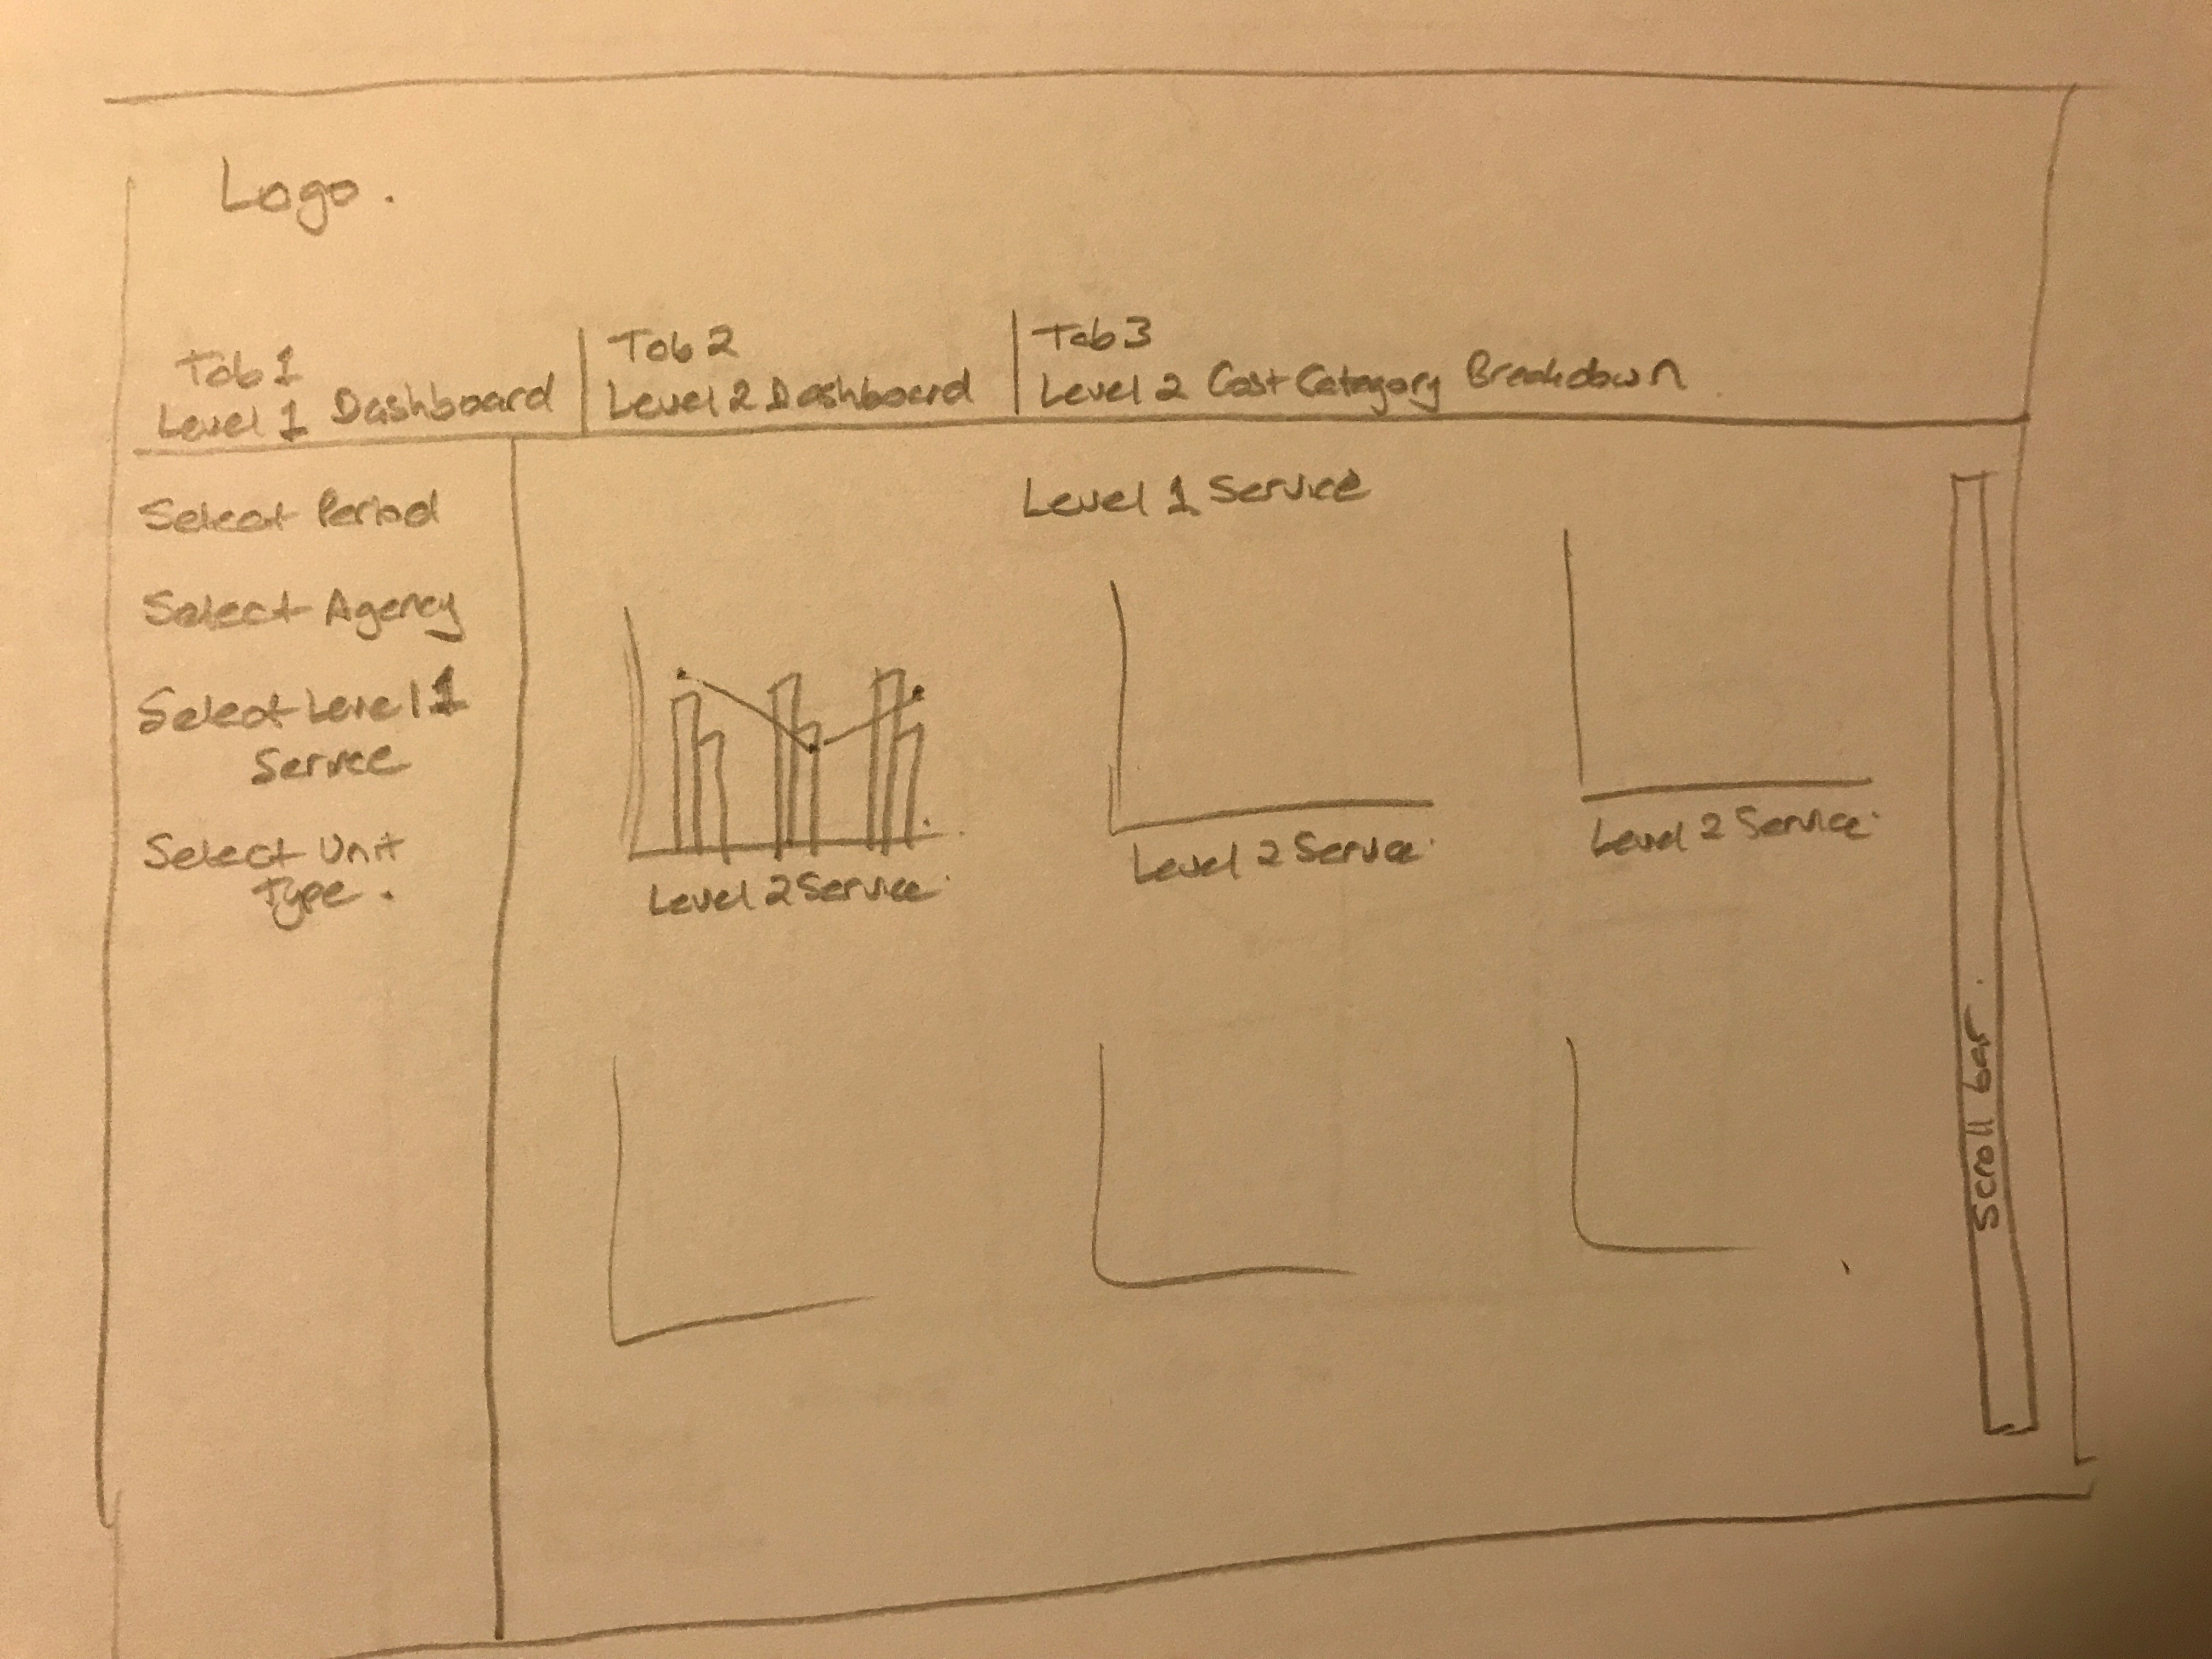 Logo.
Tab 1
Level 1 Dashboard
Tab 2
Level 2 Dashboard
Tab 3
Level 2 Cost Category Breakdown
Select Period
Select Agency
Select Level 1
Service
Select Unit
Type.
Level 1 Service
Level 2 Service
Level 2 Service
Level 2 Service
Scroll bar.